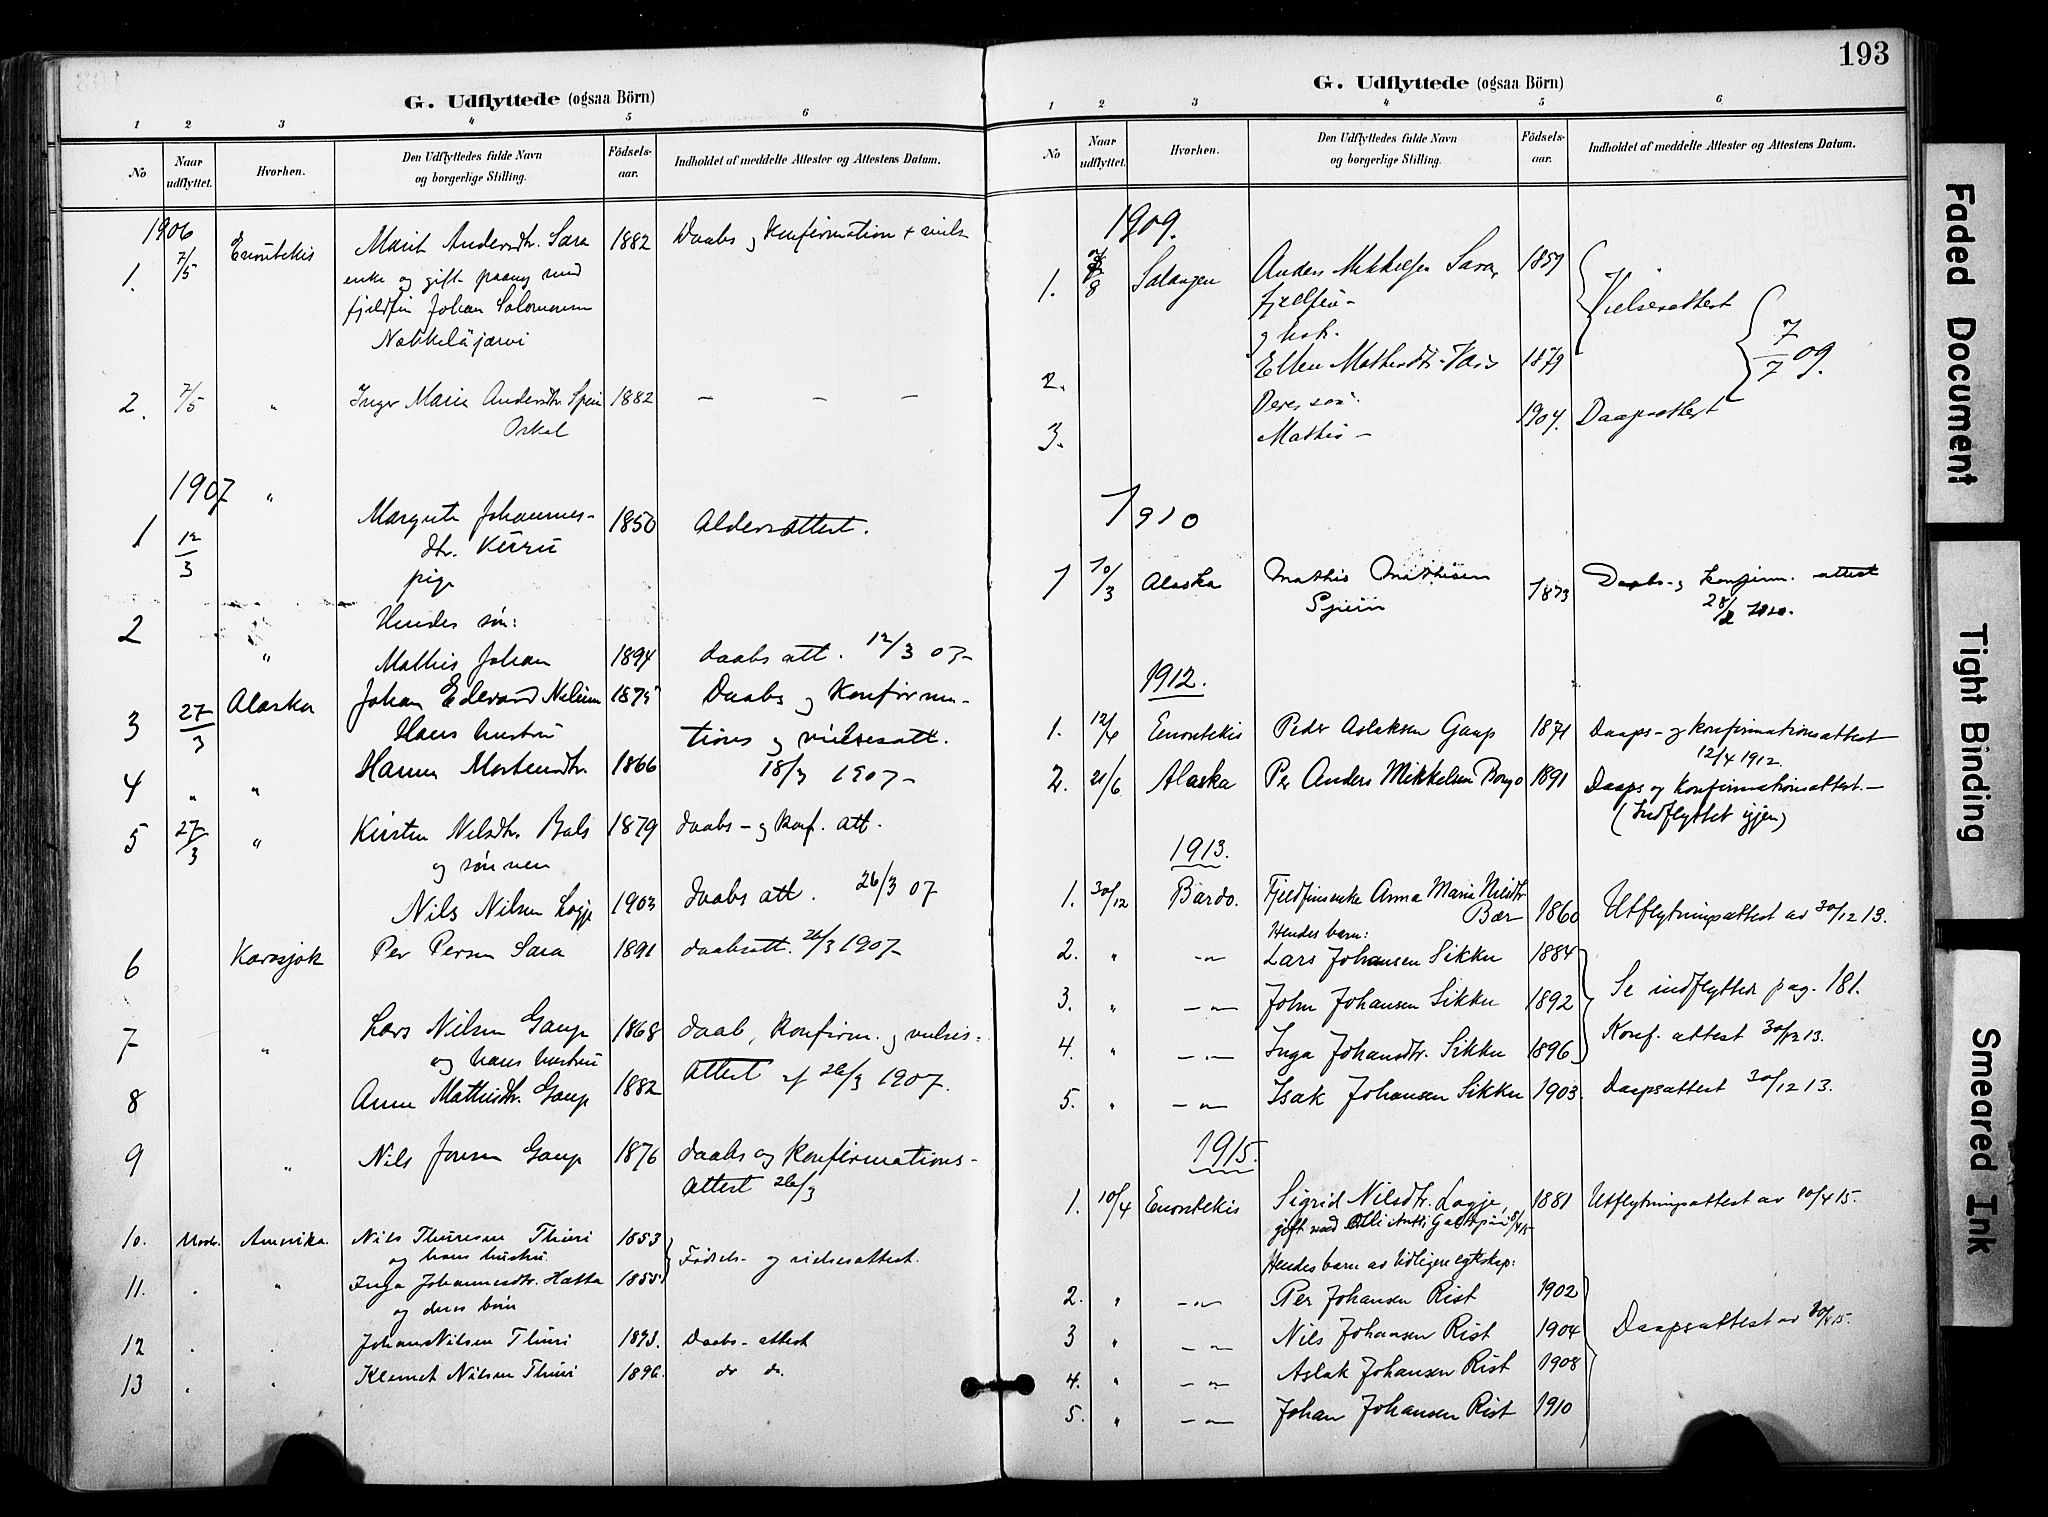 G. Udflyttede (ogsaa Börn)
1 2 3 4 5 6
No Naar udflyttet. Hvorhen. Den Udflyttedes fulde Navn og borgerlige Stilling. Födsels-aar. Indholdet af meddelte Attester og Attestens Datum.
1906
1. 7/5 Enontekis Marit Andersdtr. Sara 1882 Daabs og Konfirmation +
enke og gift paany med
fjeldfin Johan Salomonsen
Näkkeläjärvi
2. 7/5 " Inger Marie Andersdtr. Spein 1882 — — —
Oskal
1907 "
1 12/3 Margrete Johannes- 1850 Aldersattest.
dtr. Kürrü
pige
2 Hendes søn:
" Mathis Johan 1894 daabs att. 12/3 07-
3 27/3 Alaska Johan Edevard Nelsen 1875 Daabs og Konfirma-
Hans hustru tions og vielsesatt.
4 " " Hanna Mortensdtr. 1866 18/3 1907-
5 27/3 " Kirsten Nilsdtr. Bals 1879 daabs- og konf. att.
og sønnen
Nils Nilsen Logje 1903 daabs att. 26/3 07
6 Karasjok Per Persen Sara 1891 daabsatt. 26/3 1907-
7 " Lars Nilsen Gaup 1868 daab, Konfirm. og vielses-
og hans hustru
8 Anne Mathisdtr. Gaup 1882 Attest af 26/3 1907.
9 " Nils Jonsen Gaup 1876 daabs og Konfirmations-
Attest 26/3
10. Amerika Nils Thuresen Thuri 1853
og hans hustru Fødsels- og vielsesattest.
11. . " Inga Johannesdtr. Hætta 1855
og deres børn
12 . . Johan Nilsen Thuri 1893. Daabs-attest
13 . . Klemet Nilsen Thuri 1896. do do.
193
G. Udflyttede (ogsaa Börn)
1 2 3 4 5 6
No Naar udflyttet. Hvorhen. Den Udflyttedes fulde Navn og borgerlige Stilling. Födsels-aar. Indholdet af meddelte Attester og Attestens Datum.
1909.
1. 8 Salangen Anders Mikkelsen Sara, 1859
fjelfin- Vielsesattest
og hst.
2. Ellen Mathisdtr. Vars 1879 7/7 09.
Deres søn:
3. Mathis — 1904. Daapsattest
1910
1 10/3 Alaska Mathis Mathisen 1873 Daabs- og konfirm. attest
Spein 28/2 1910.
1912.
1. 12/4 Enontekis Peder Aslaksen Gaup 1871 Daaps- og konfirmationsattest
12/4 1912.
2. 21/6 Alaska Per Anders Mikkelsen Bongo 1891 Daaps og Konfirmationsattest.—
(Indflyttet igjen)
1913.
1. 30/12 Bardo. Fjeldfinsenke Anna Marie Nilsdtr.
Bær 1860 Utflytningsattest av 30/12 13.
Hendes barn:
2. " -"- Lars Johansen Sikku 1884
3. " -"- John Johansen Sikku 1892 Se indflyttede pag. 181.
4. " -"- Inga Johansdtr. Sikku 1896 Konf. attest 30/12 13.
5. " -"- Isak Johansen Sikku 1903. Daapsattest 30/12 13.
1915.
1. 10/4 Enontekis Sigrid Nilsdtr. Logje, 1881 Utflytningsattest av 10/4 15.
gift med Olli Antti
Hendes barn av tidligere egteskap:
2. " -"- Per Johansen Rist 1902
3 " -"- Nils Johansen Rist 1904 Daapsattest av 10/4 15.
4. " -"- Aslak Johansen Rist 1908
5. " -"- Johan Johansen Rist 1910
Faded Document
Tight Binding
Smeared Ink